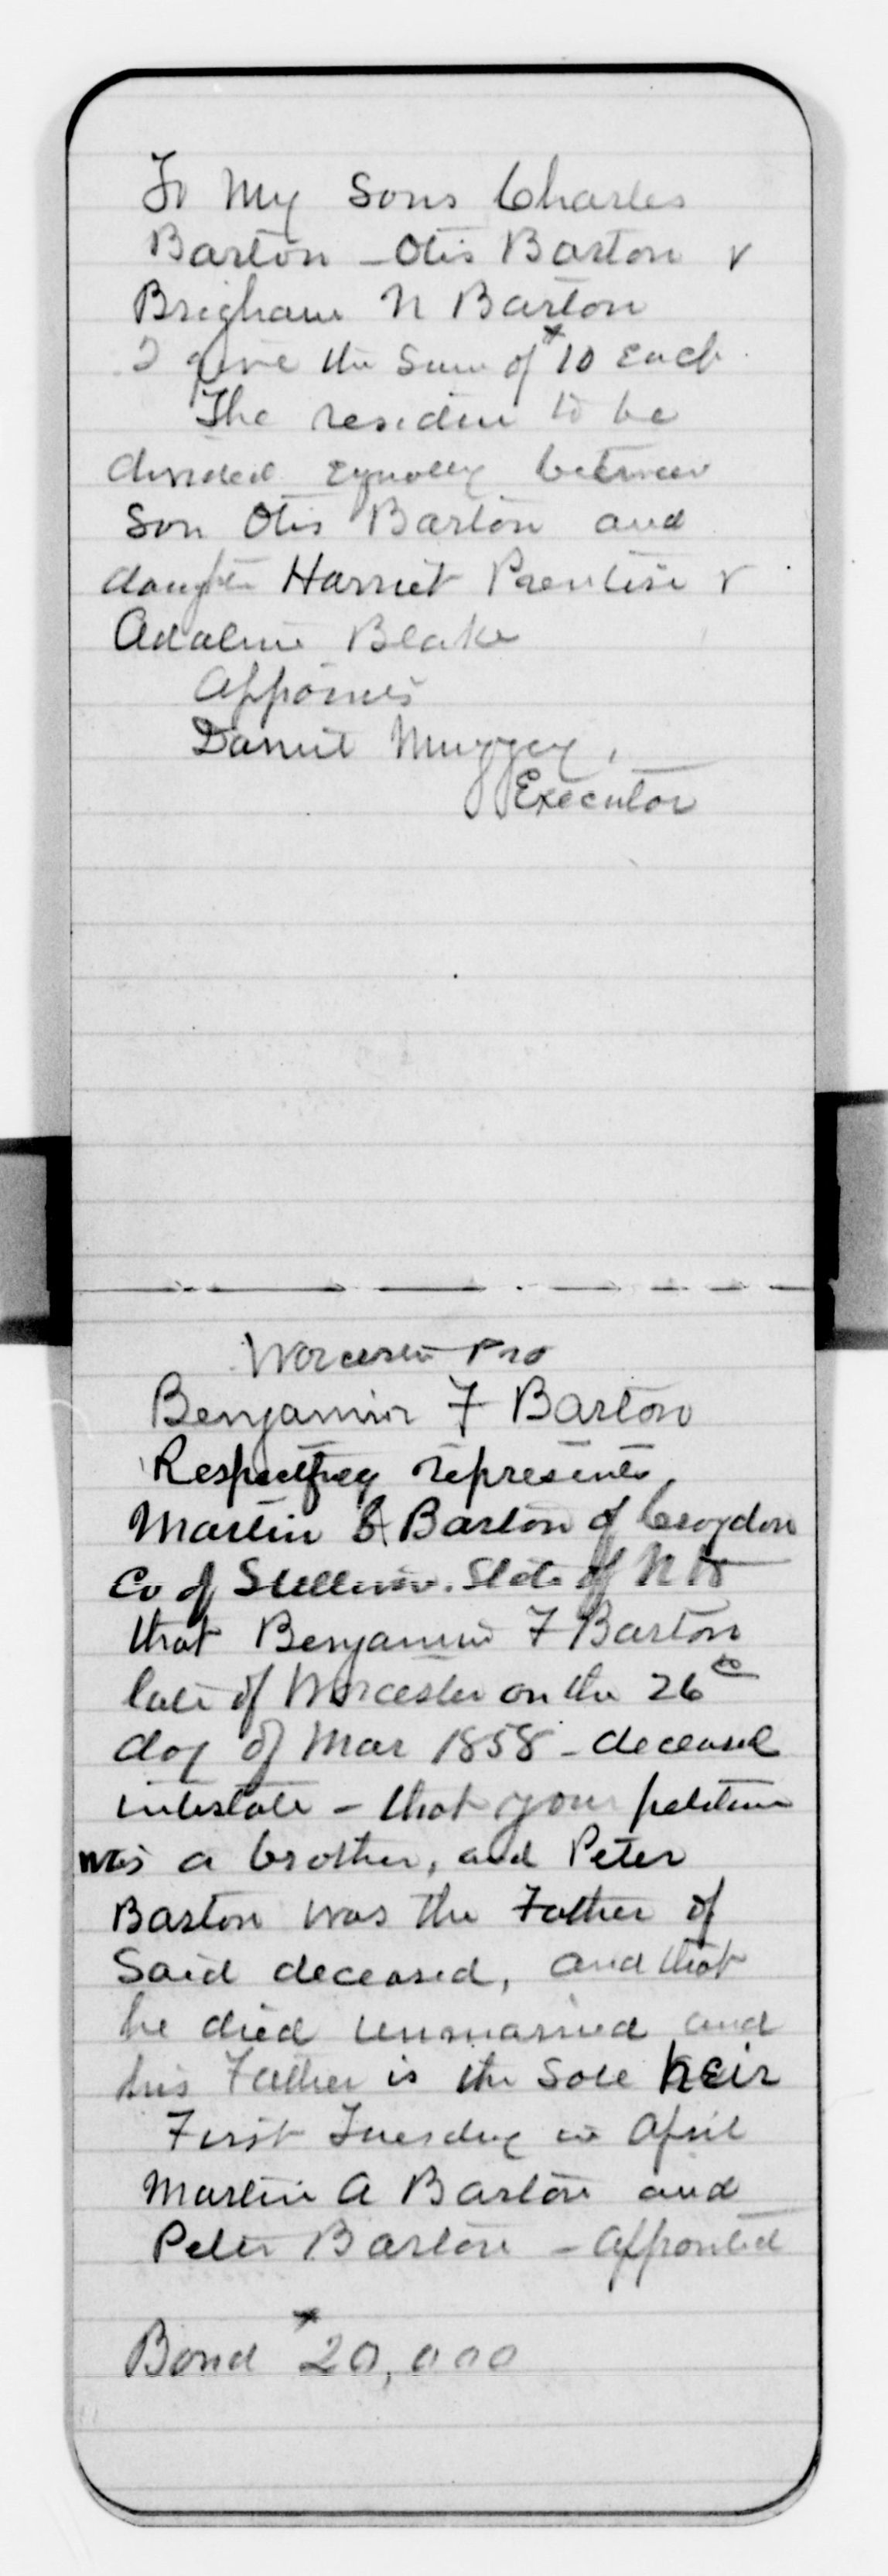 To My Sons Charles
Barton - Otis Barton &
Brigham N Barton
I give the Sum of $10 Each.
The residue to be
divided Equally between
Son Otis Barton and
daughter Harriet Prentise &
Adaline Blake
Appoints
Daniel Muzzey,
Executor
Worcester Pro
Benjamin F Barton
Respectfully represents,
Martin A Barton of Croydon
Co of Sullivan. State of N H
that Benjamin F Barton
late of Worcester on the 26th
day of Mar 1858 - deceased
intestate - that your petitioner
was a brother, and Peter
Barton was the Father of
Said deceased, and that
he died unmarried and
his Father is the Sole heir
First Tuesday in April
Martin A Barton and
Peter Barton - Appointed
Bond $20,000